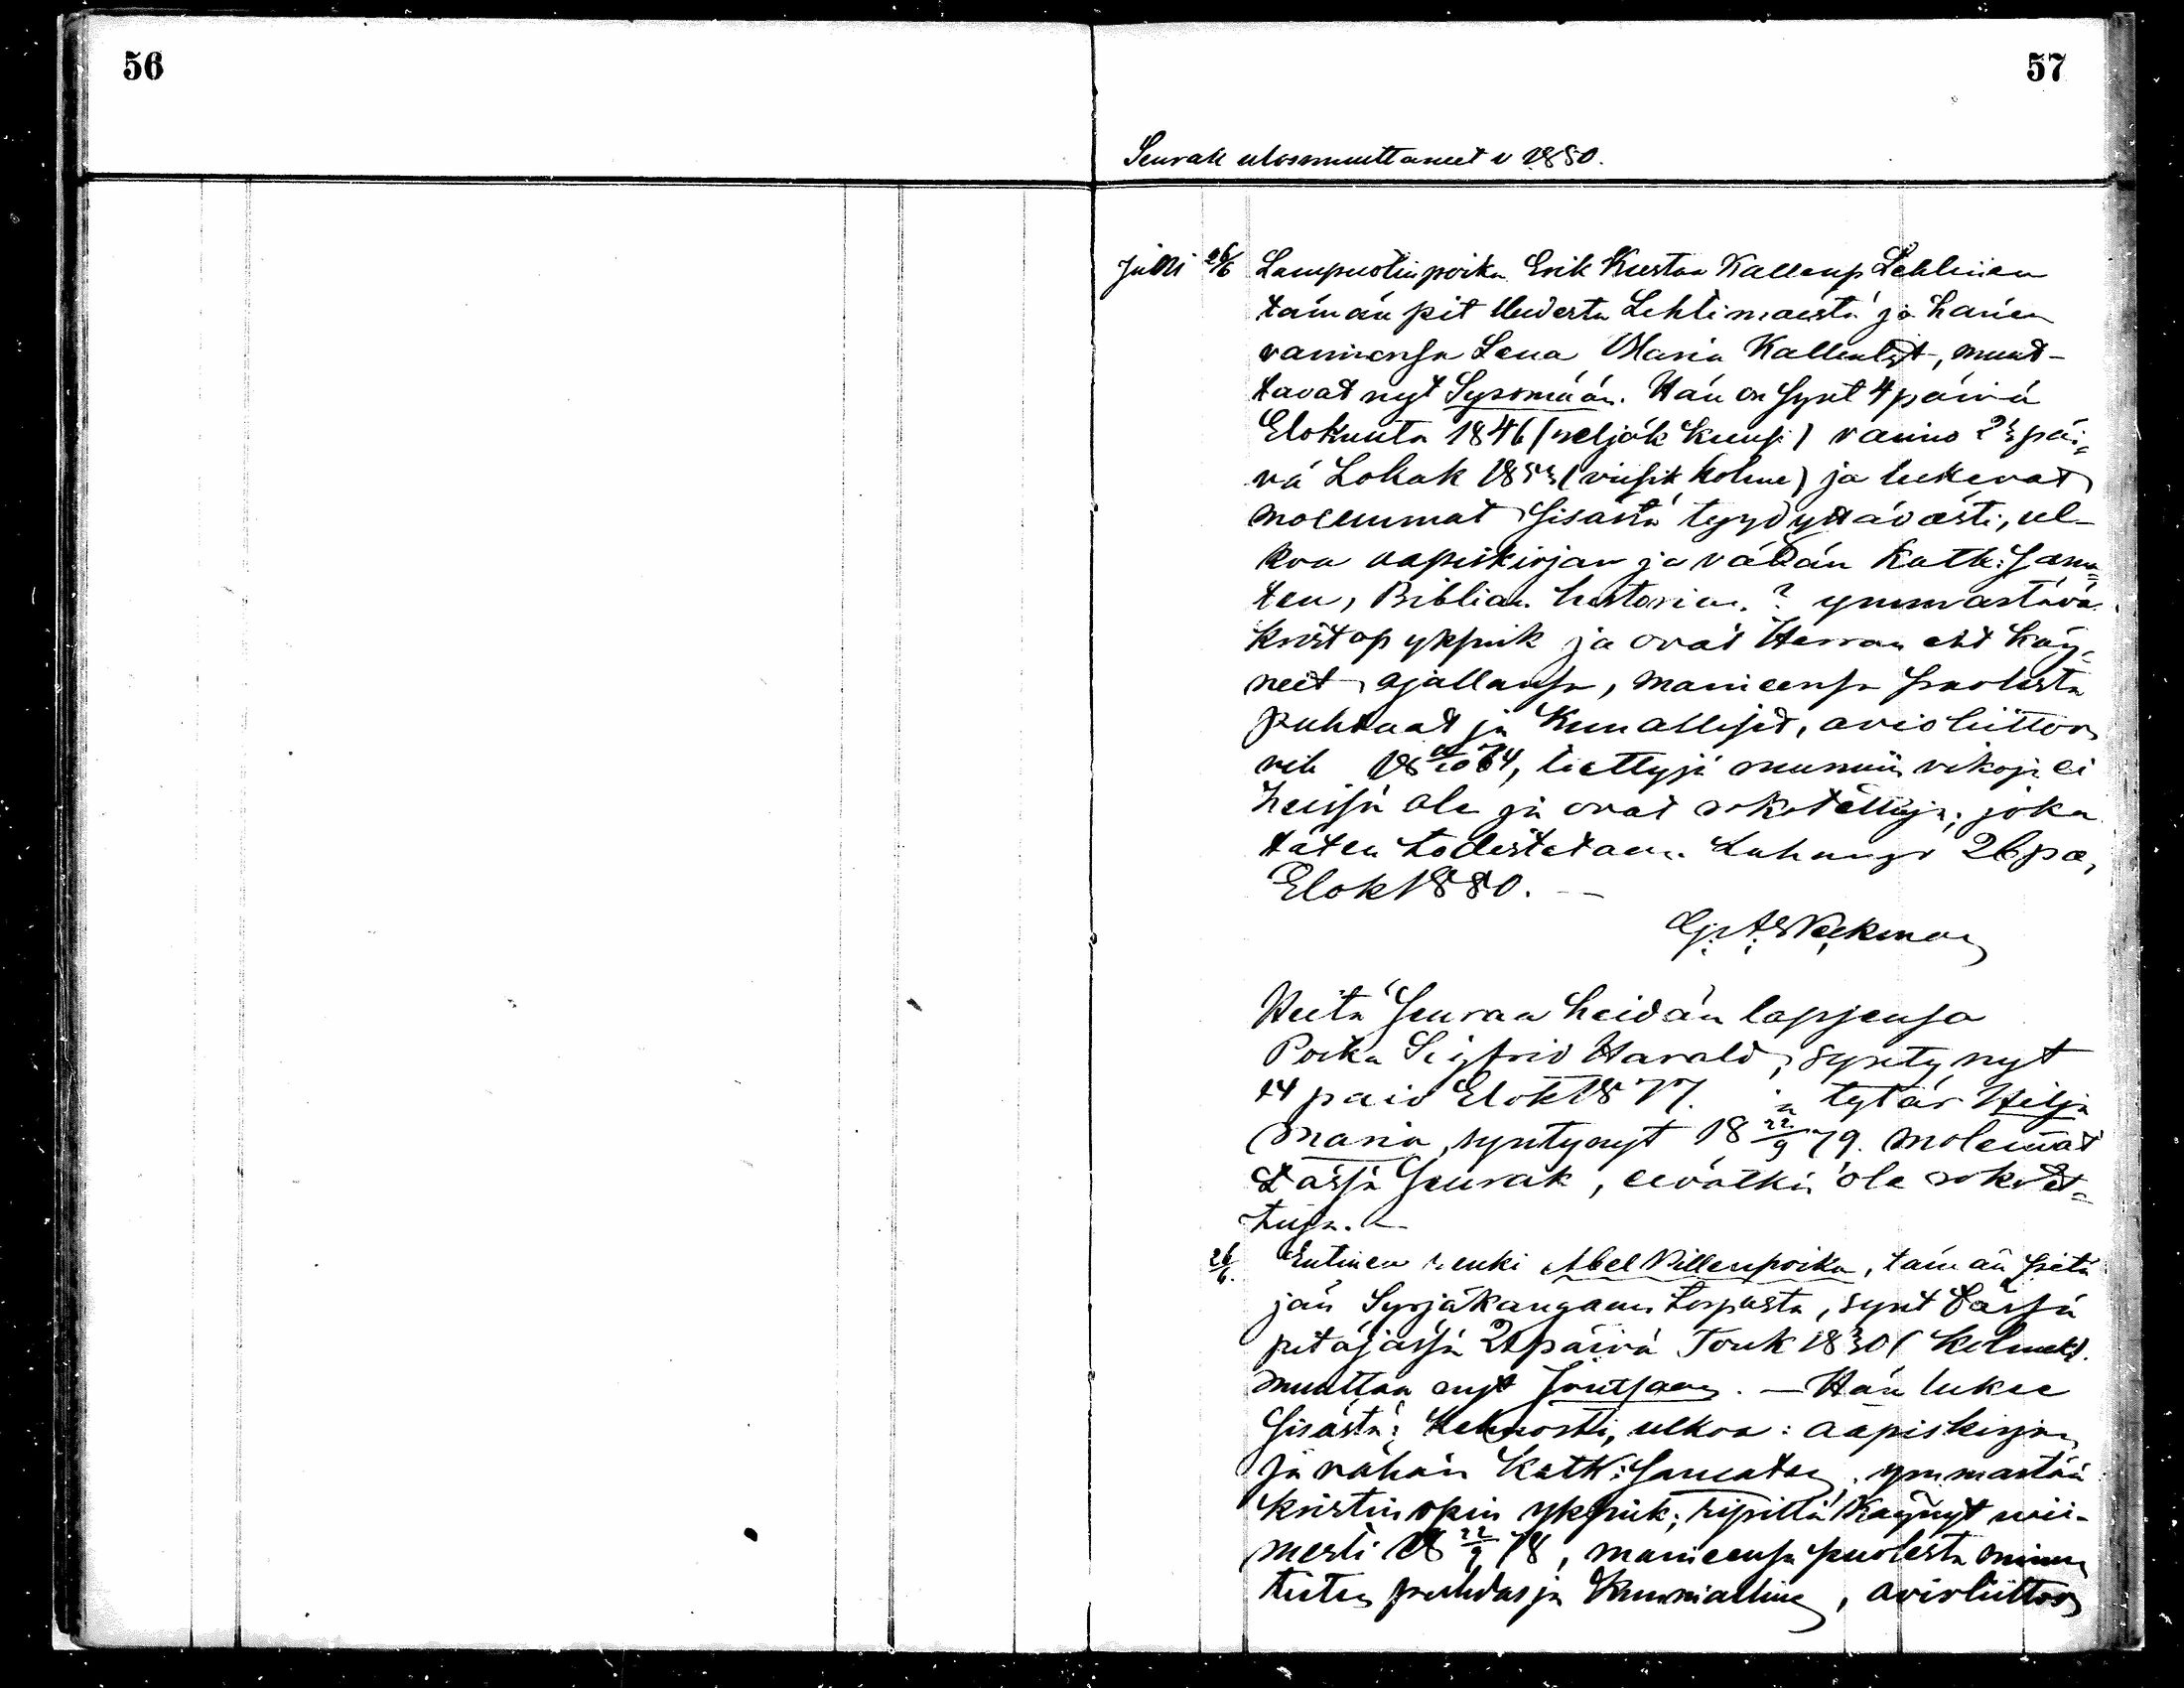 56
57
Seurak ulosmuuttaneet v 1880.
Juli 26/6 Lampuotinpoika Erik Kustaa Kallenp Lehtinen
tämän pit Uudesta Lehtimäestä ja hänen
vaimonsa Lena Maria Kallentyt, muut-
tavat nyt Sysomään. Hän on synt 4 päivä
Elokuuta 1846 (neljäk kuusi) vaimo päi-
vä Lokak 1853 (viisik kolme) ja lukevat
molemmat sisästä tyydyttävästi, ul-
koa aapiskirjan ja vähän Katk: sanu-
ten, Biblian historian ? ymmärtävä
krist op ykspuk ja ovat Herran eht käy-
neet ajallansa, maineensa puolesta
puhtaat ja kunialliset, avioliittoon
vih 18 64, tiettyjä muumia vikoja ei
heissä ole ja ovat rokotettuja; joka
täten todistetaan. Luhanga 26 pä,
Elok 1880. —
Heitä seuraa heidän lapsensa
Poika Sigfrid Harald, syntynyt
14 päiv Elok 1877. ja tytär Hilja
Maria, syntynyt 18 22/9 79. molemat
tässä Seurak, eivätkä ole rokotet-
tuja. —
26/6. Entinen renki Abel Villenpoika, tämän pitä
jän Syrjäkangaan torpasta, synt tässä
pitäjässä 21 päivä Touk 1830 (kolmek).
muuttaa nyt Joutsaan. — Hän lukee
Sisästä: Kehnosti, ulkoa: aapiskirjan
ja vähän Katk: sanatar, ymmärtää
kristin opin ykspuk; ripillä käynyt vii-
mesti 18 22/9 78, maineensa puolesta minun
tieten puhdas ja kunniallinen, avioliittoon